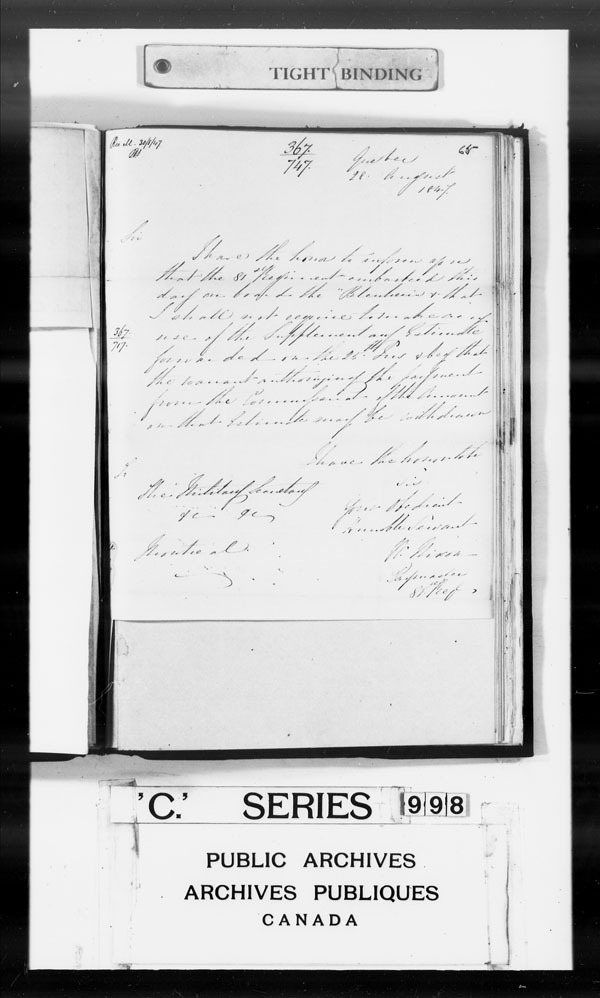 TIGHT BINDING
367.
747.
68
Quebec
28 August
1847.
Sir
I have the honor to inform you
that the 81st Regiment embarked this
day on board the "Blenheim" & that
I shall not require to make any
use of the Supplementary Estimate
367.
747.
forwarded on the 26th Ins & beg that
the warrant authorizing the payment
from the Commissariat of the amount
on that Estimate may be withdrawn
I have the honor to be
Sir
The Military Secretary
&c &c
Your Obedient
Humble Servant
Montreal
W. Nixon
Paymaster
81st Reg
'C.' SERIES 998
PUBLIC ARCHIVES
ARCHIVES PUBLIQUES
CANADA